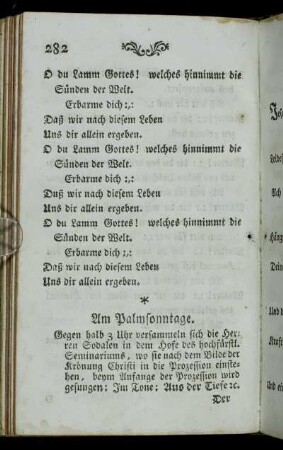 282
O du Lamm Gottes! welches hinnimmt die
Sünden der Welt.
Erbarme dich :,:
Daß wir nach diesem Leben
Uns dir allein ergeben.
O du Lamm Gottes! welches hinnimmt die
Sünden der Welt.
Erbarme dich :,:
Duß wir nach diesem Leben
Uns dir allein ergeben.
O du Lamm Gottes! welches hinnimmt die
Sünden der Welt.
Erbarme dich :,:
Daß wir nach diesem Leben
Uns dir allein ergeben.
*
Am Palmsonntage.
Gegen halb 3 Uhr versammeln sich die Her-
ren Sodalen in dem Hofe des hochfürstl.
Seminariums, wo sie nach dem Bilde der
Krönung Christi in die Prozession einste-
hen, beym Anfange der Prozession wird
gesungen: Im Tone: Aus der Tiefe ꝛc.
Der